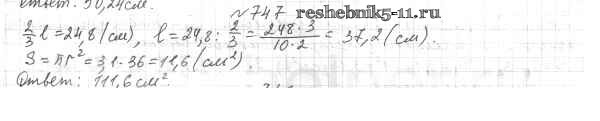 Ответ: 50,24 см.
№747 reshebnik5-11.ru
2/3 l = 24,8 (см), l = 24,8 : 2/3 = 248·3/10·2 = 37,2 (см).
S = πr² = 3,1·36 = 11,6 (см²).
Ответ: 111,6 см².